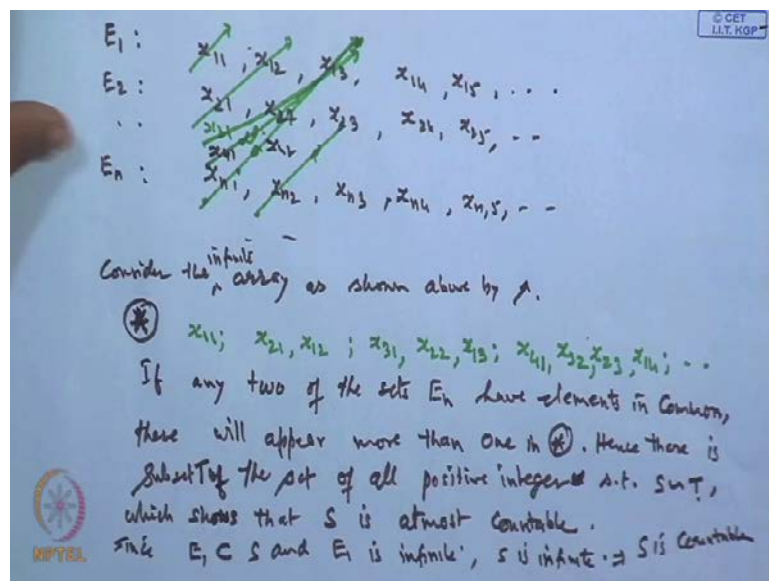 © CET
I.I.T. KGP
E1 : x11 , x12 , x13 , x14 , x15 , ...
E2 : x21 , x22 , x23 , x24 , x25 , --
..
x31
x41 x42
En : xn1 , xn2 , xn3 , xn4 , xn,5 , --
Consider the infinite array as shown above by ↗.
(*) x11 ; x21, x12 ; x31, x22, x13 ; x41, x32, x23, x14 ; ..
If any two of the sets En have elements in Common,
these will appear more than one in (*). Hence there is
Subset T of the set of all positive integer s.t. S ~ T,
which shows that S is atmost Countable.
Since E1 ⊂ S and E1 is infinite, S is infinite. ⇒ S is Countable
NPTEL